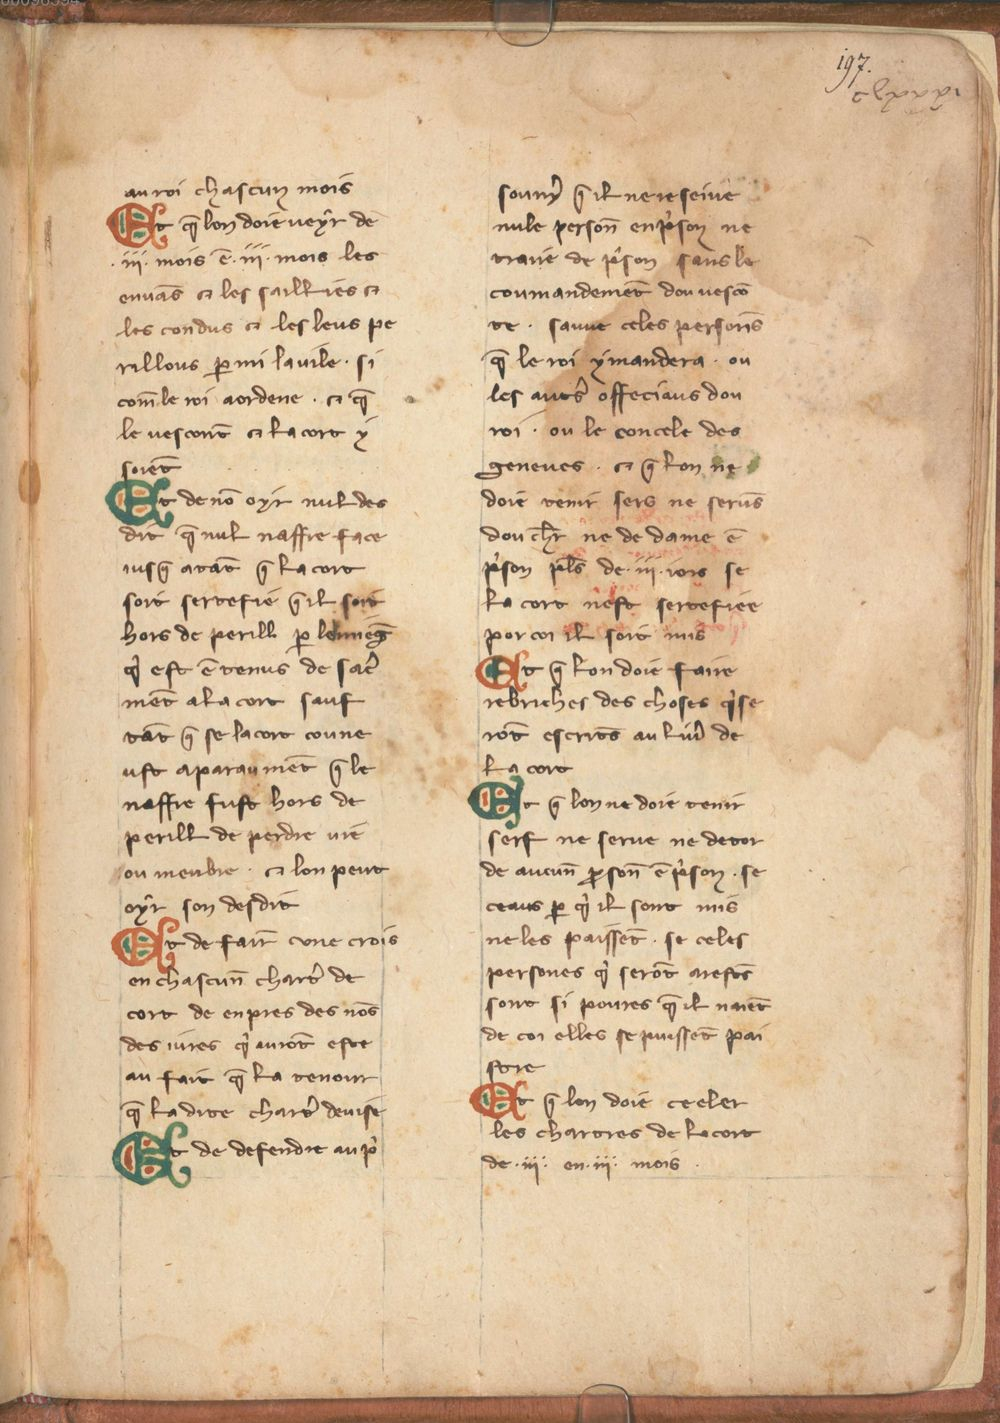 197.
clxxxi
au roi chascun mois
Et q̄ lon doie veyr de
.iii. mois ē .iii. mois les
enuās ⁊ les saillies ⁊
les condus ⁊ les leus pe
rillous p mi la vile . si
com̄ le roi a ordene . ⁊ q̄
le vescont̄ ⁊ la cort y
soiēt
Et de nō oyr nul des
dit q̄ nul naffre face
iusq̄ atāt q̄ la cort
soit sertefie q̄ il soit
hors de perill p le
q̓ est ē tenus de sar̓
mēt a la cort sauf
tāt q̄ se la cort coune
ust aparaumēt q̄ le
naffre fust hors de
perill de perdre vie
ou menbre . ⁊ lon peut
oyr son desdit
Et de fair̄ cune crois
en chascun̄ chart̓ de
cort de enpres des nōs
des iures q̓ aurōt este
au fait q̄ la tenour
q̄ la dite chart̓ deuise
Et de defendre au p̓
souny̓ q̄ il ne reseiue
nule person̄ en p̓son ne
traie de p̓son sans le
coumandemēt dou vescō
te . sauue celes persons̄
q̄ le roi y mandera . ou
les aut̓s officiaus dou
roi . ou le concele des
geneues . ⁊ q̄ lon ne
doie tenir sers ne serus̄
dou chr̄ ne de dame ē
p̓son pl̄s de .iii. iors se
la cort nest sertefiee
por coi il soit mis
Et q̄ lon doie faire
rebriches des choses q̓ se
rōt escrits̄ au liur̓ de
la cort
Et q̄ lon ne doie tenir
serf ne serue ne detor
de aucun̄ pson̄ ē p̓son . se
ceaus p q̓ il sont mis
ne les paissēt . se celes
persones q̓ serōt arests̄
sont si poures q̄ il naiēt
de coi elles se puissēt pai
stre
Et q̄ lon doie ceeler
les chartres de la cort
de .iii. en .iii. mois .